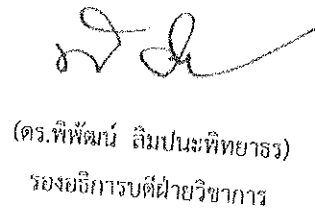 (ดร.พิพัฒน์ ลิมปนะพิทยาธร)
รองอธิการบดีฝ่ายวิชาการ